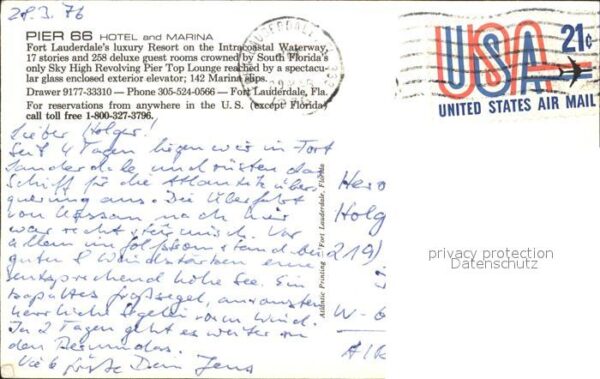 28.3.76
PIER 66 HOTEL and MARINA
Fort Lauderdale's luxury Resort on the Intracoastal Waterway,
17 stories and 258 deluxe guest rooms crowned by South Florida's
only Sky High Revolving Pier Top Lounge reached by a spectacu-
lar glass enclosed exterior elevator; 142 Marina slips.
Drawer 9177-33310 — Phone 305-524-0566 — Fort Lauderdale, Fla.
For reservations from anywhere in the U.S. (except Florida)
call toll free 1-800-327-3796.
USA 21¢
UNITED STATES AIR MAIL
Lieber Holger!
Seit 4 Tagen liegen wir in Fort
Lauderdale und rüsten das
Schiff für die Atlantiküber-
querung aus. Die Überfahrt
von Nassau nach hier
war recht stürmisch. Vor
allem im Golfstrom stand bei
guten 8 Windstärken eine
entsprechend hohe See. Ein
Großsegel, ansonsten
herrliche Segelei vorm Wind.
In 2 Tagen geht es weiter zu
den Bermudas.
Viele Grüße Dein Jens
Atlantic Printing Fort Lauderdale, Florida
Herr
Holg
219)
W-6
privacy protection
Datenschutz